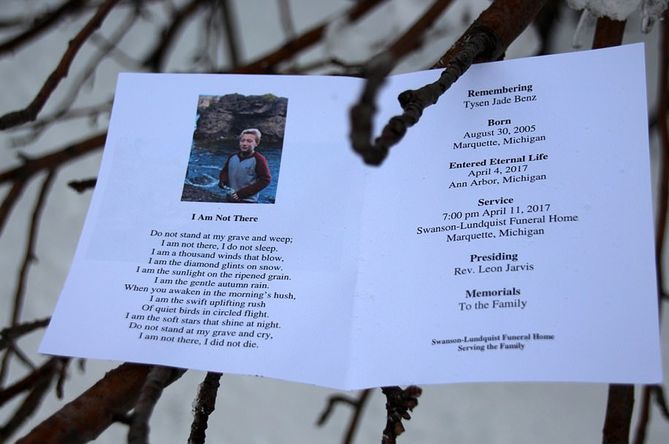 I Am Not There
Do not stand at my grave and weep;
I am not there, I do not sleep.
I am a thousand winds that blow,
I am the diamond glints on snow.
I am the sunlight on the ripened grain.
I am the gentle autumn rain.
When you awaken in the morning's hush,
I am the swift uplifting rush
Of quiet birds in circled flight.
I am the soft stars that shine at night.
Do not stand at my grave and cry,
I am not there, I did not die.
Remembering
Tysen Jade Benz
Born
August 30, 2005
Marquette, Michigan
Entered Eternal Life
April 4, 2017
Ann Arbor, Michigan
Service
7:00 pm April 11, 2017
Swanson-Lundquist Funeral Home
Marquette, Michigan
Presiding
Rev. Leon Jarvis
Memorials
To the Family
Swanson-Lundquist Funeral Home
Serving the Family